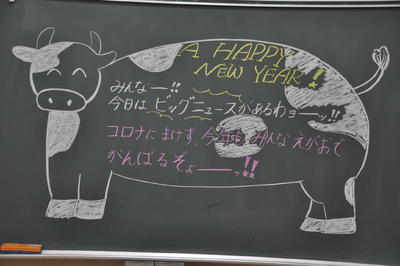 A HAPPY
NEW YEAR!
みんなー!!
今日は ビッグニュースがあるわョーッ!!
コロナにまけず、今年も みんな えがおで
がんばるぞぉーっ!!